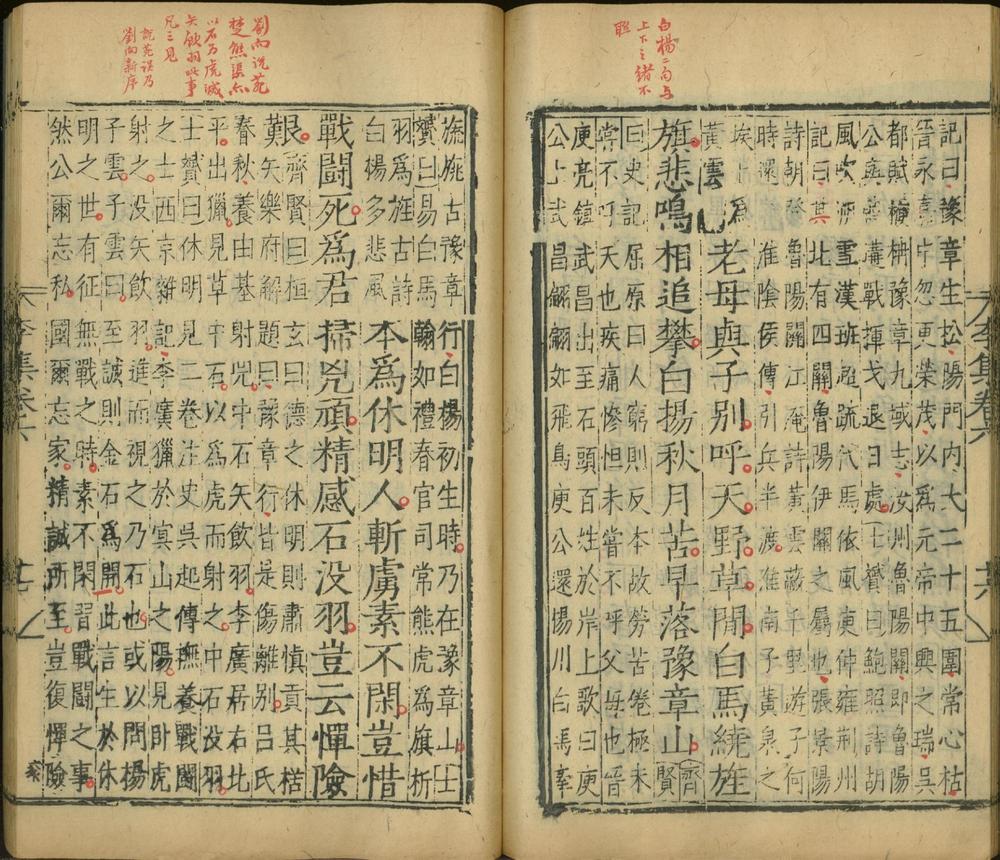 白楊二句与
上下之緒不
聯
記曰豫章生松陽門内大二十五圍常心枯
晉永嘉中忽更榮茂以爲元帝中興之瑞吳
都賦楩枏豫章九域志汝州魯陽關即魯陽
公與燕遘戰揮戈退日處士贇曰鮑照詩胡
風吹朔雪漢班超疏代馬依風庾仲雍荆州
記曰其北有四關魯陽伊闕之屬也張景陽
詩朝登魯陽關江淹詩黄雲蔽千里遊子何
時還淮陰侯傳引兵半渡淮南子黄泉之
埃上爲
黄雲
老母與子别呼天野草間白馬繞旌
旗悲鳴相追攀白楊秋月苦早落豫章山齊賢
曰史記屈原曰人窮則反本故勞苦倦極未
嘗不呼天也疾痛慘怛未嘗不呼父母也晉
庾亮鎮武昌出至石頭百姓於岸上歌曰庾
公上武昌翩翩如飛鳥庾公還揚川白馬牽
李集卷六
廿六
劉向說苑
楚熊渠亦
以石爲虎滅
矢飲羽此事
凡三見
說苑誤乃
劉向新序
旐旌古豫章行白楊初生時乃在豫章山士
贇曰易白馬翰如禮春官司常熊虎爲旗析
羽爲旌古詩
白楊多悲風
本爲休明人斬虜素不閑豈惜
戰鬭死爲君掃兇頑精感石没羽豈云憚險
艱齊賢曰桓玄曰德之休明則肅慎貢其楛
矢樂府解題曰豫章行皆是傷離别呂氏
春秋養由基射兕中石矢飲羽李廣居右北
平出獵見草中石以爲虎而射之中石没羽
士贇曰休明見二卷注史吳起傳撫養戰鬭
之士西京雜記李廣獵於冥山之陽見卧虎
射之没矢飲羽進而視之乃石也或以問揚
子雲子雲曰至誠則金石爲開此言生於休
明之世有征無戰之時素不閑習戰鬭之事
然公爾忘私國爾忘家精誠所至豈復憚險
李集卷六
廿七